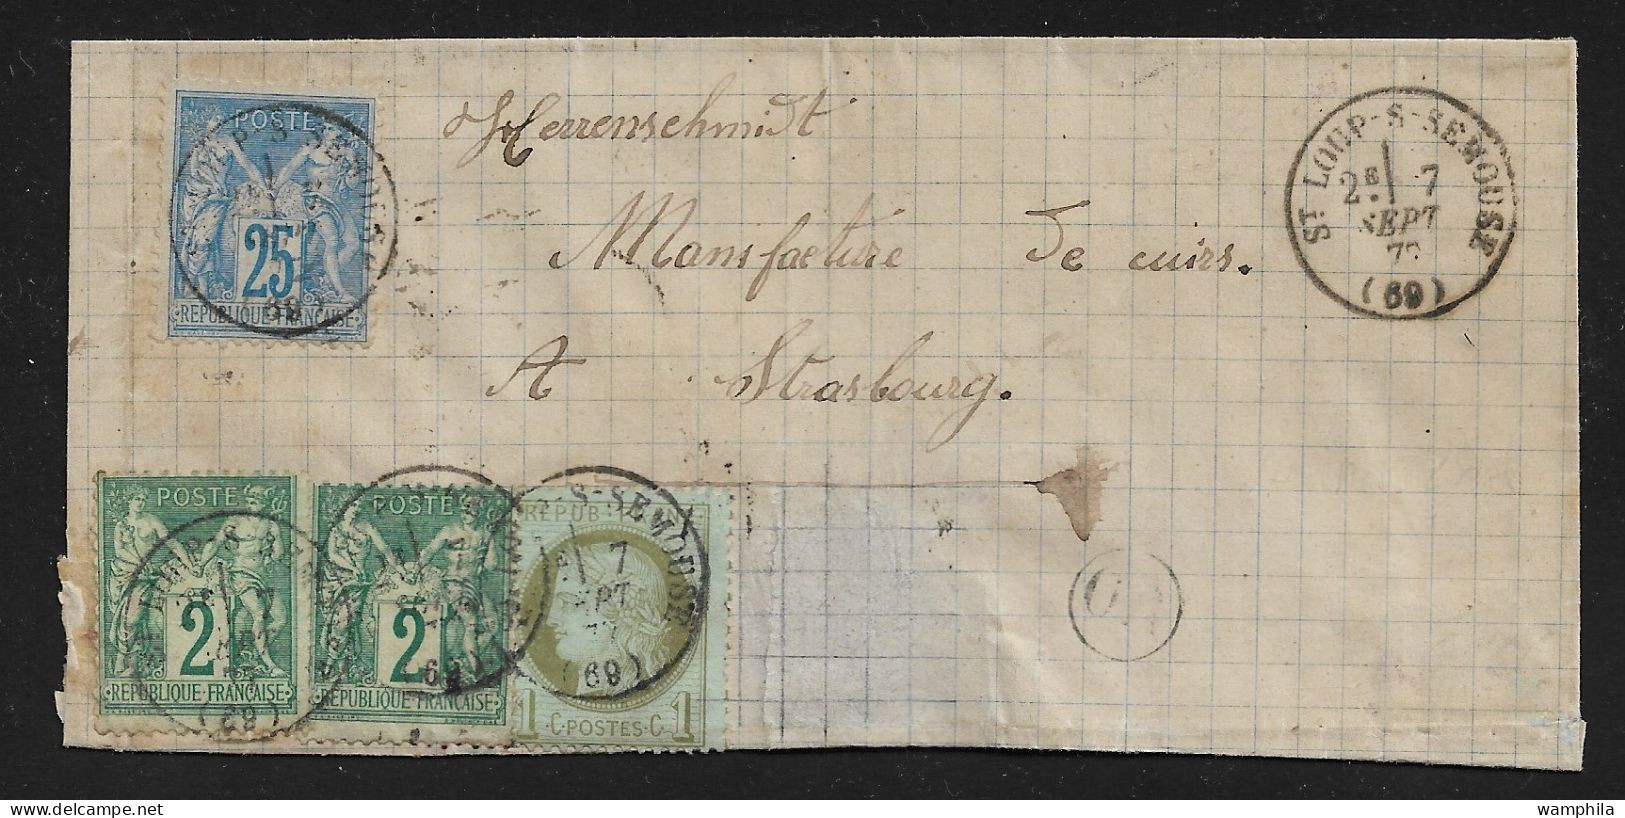 Herrenschmidt
Manufacture de cuirs.
A Strasbourg.
ST LOUP-S-SEMOUSE
2E 7
SEPT
(69)
POSTE
25
REPUBLIQUE FRANÇAISE
POSTE
2
REPUBLIQUE FRANÇAISE
POSTE
2
REPUBLIQUE FRANÇAISE
REPUB
1 C·POSTES·C 1
S-SEMOUSE
7
(69)
(69)
(69)
(69)
wamphila